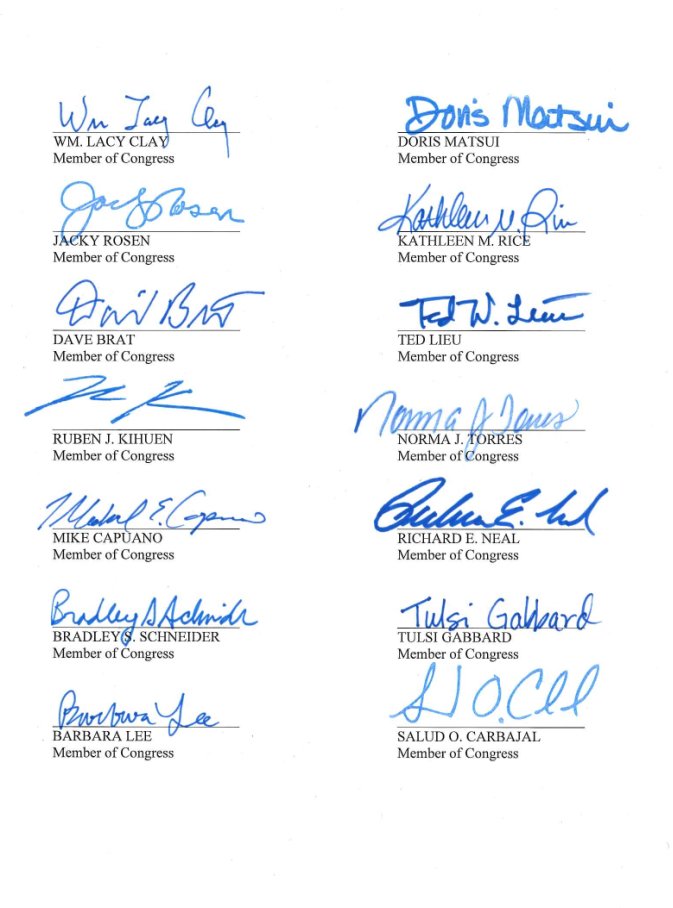 Wm Lacy Clay
WM. LACY CLAY
Member of Congress
Doris Matsui
DORIS MATSUI
Member of Congress
Jacky Rosen
JACKY ROSEN
Member of Congress
Kathleen M. Rice
KATHLEEN M. RICE
Member of Congress
David Brat
DAVE BRAT
Member of Congress
Ted W. Lieu
TED LIEU
Member of Congress
RUBEN J. KIHUEN
Member of Congress
Norma J Torres
NORMA J. TORRES
Member of Congress
Michael E. Capuano
MIKE CAPUANO
Member of Congress
Richard E. Neal
RICHARD E. NEAL
Member of Congress
Bradley S Schneider
BRADLEY S. SCHNEIDER
Member of Congress
Tulsi Gabbard
TULSI GABBARD
Member of Congress
Barbara Lee
BARBARA LEE
Member of Congress
SALUD O. CARBAJAL
Member of Congress